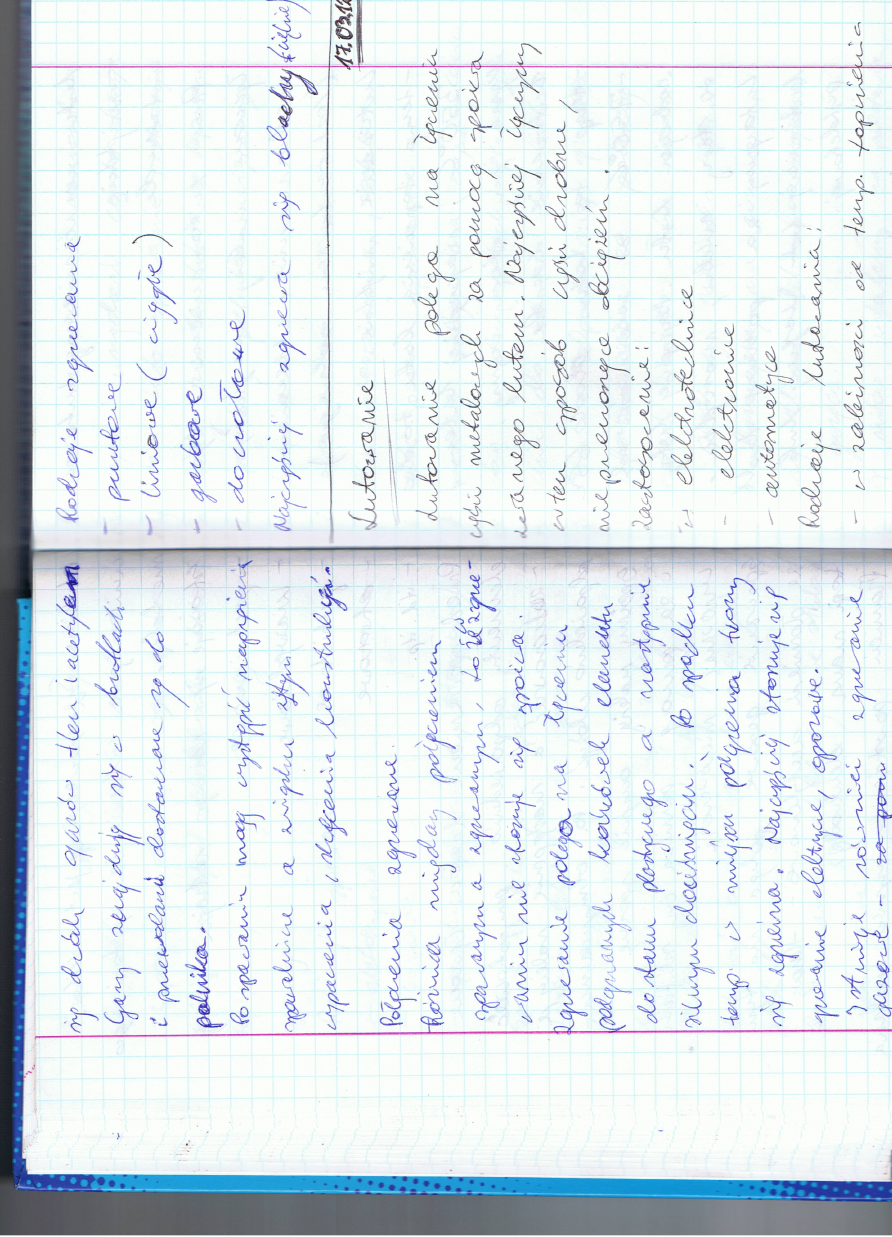 się dwóch gazów tlen i acetylem
Gazy znajdują się w butlach
i przewodami dostarczane są do
palnika.
Po spawaniu mogą wystąpić naprężenia
spawalnicze a między
wypaczenia,
Połączenia zgrzewane.
Różnica między połączeniem
spawanym a zgrzewanym, to że zgrze-
waniu nie stosuje się spoiwa.
Zgrzewanie polega na łączeniu
podgrzanych końcówek elementu
do stanu plastycznego a następnie
silnym dociśnięciu. Po spadku
temp w miejscu połączenia tworzy
się zgrzeina. Najczęściej stosuje się
grzanie elektryczne, oporowe.
Istnieje również zgrzewanie
Rodzaje zgrzewania
- punktowe
- liniowe (ciągłe)
- garbowe
- doczołowe
Najczęściej zgrzewa się blachy
17.03.12
Lutowanie
Lutowanie polega na łączeniu
części metalowych za pomocą spoiwa
zwanego lutem. Najczęściej łączymy
w ten sposób części drobne,
nie przenoszące obciążeń.
Zastosowanie:
- w elektrotechnice
- elektronice
- automatyce
Rodzaje lutowania:
- w zależności od temp. topnienia